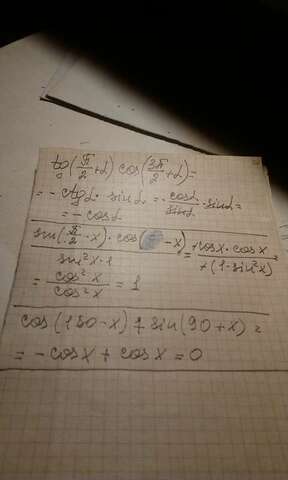 tg(π/2+α) cos(3π/2+α)=
= - ctgα · sinα = - cosα/sinα · sinα =
= - cosα
sin(π/2 - x) · cos( - x)/sin²x - 1 = + cosx · cosx/+(1 - sin²x) =
= cos²x/cos²x = 1
cos(180 - x) + sin(90 + x) =
= - cosx + cosx = 0